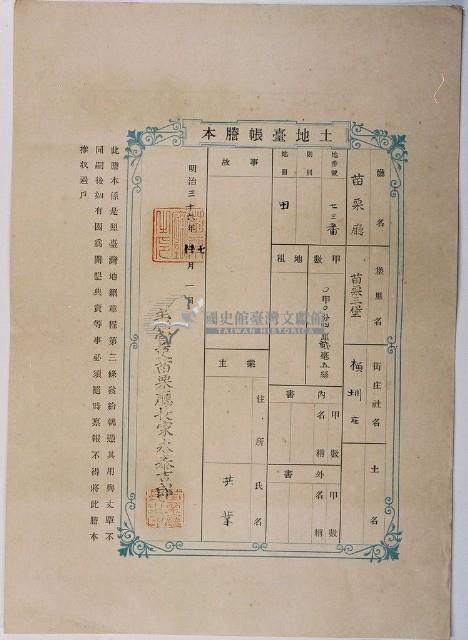 土地臺帳謄本
廳名 苗栗廳
堡里名 苗栗三堡
街庄社名 橫圳庄
土名
地番號 七三番
則別
地目 田
甲數 〇甲〇分四厘貳毫五絲
地租
內書 甲數 名稱
外書 甲數 名稱
事故
業主
住所
氏名 共業
明治三十六年七月一日
苗栗廳長家永泰吉郎
國史館臺灣文獻館
TAIWAN HISTORICA
此謄本係是照臺灣地籍章程第三條發給執憑其用與丈單不
同嗣後如有因為開墾典賣等事必須隨時稟報不得將此謄本
擦取過戶